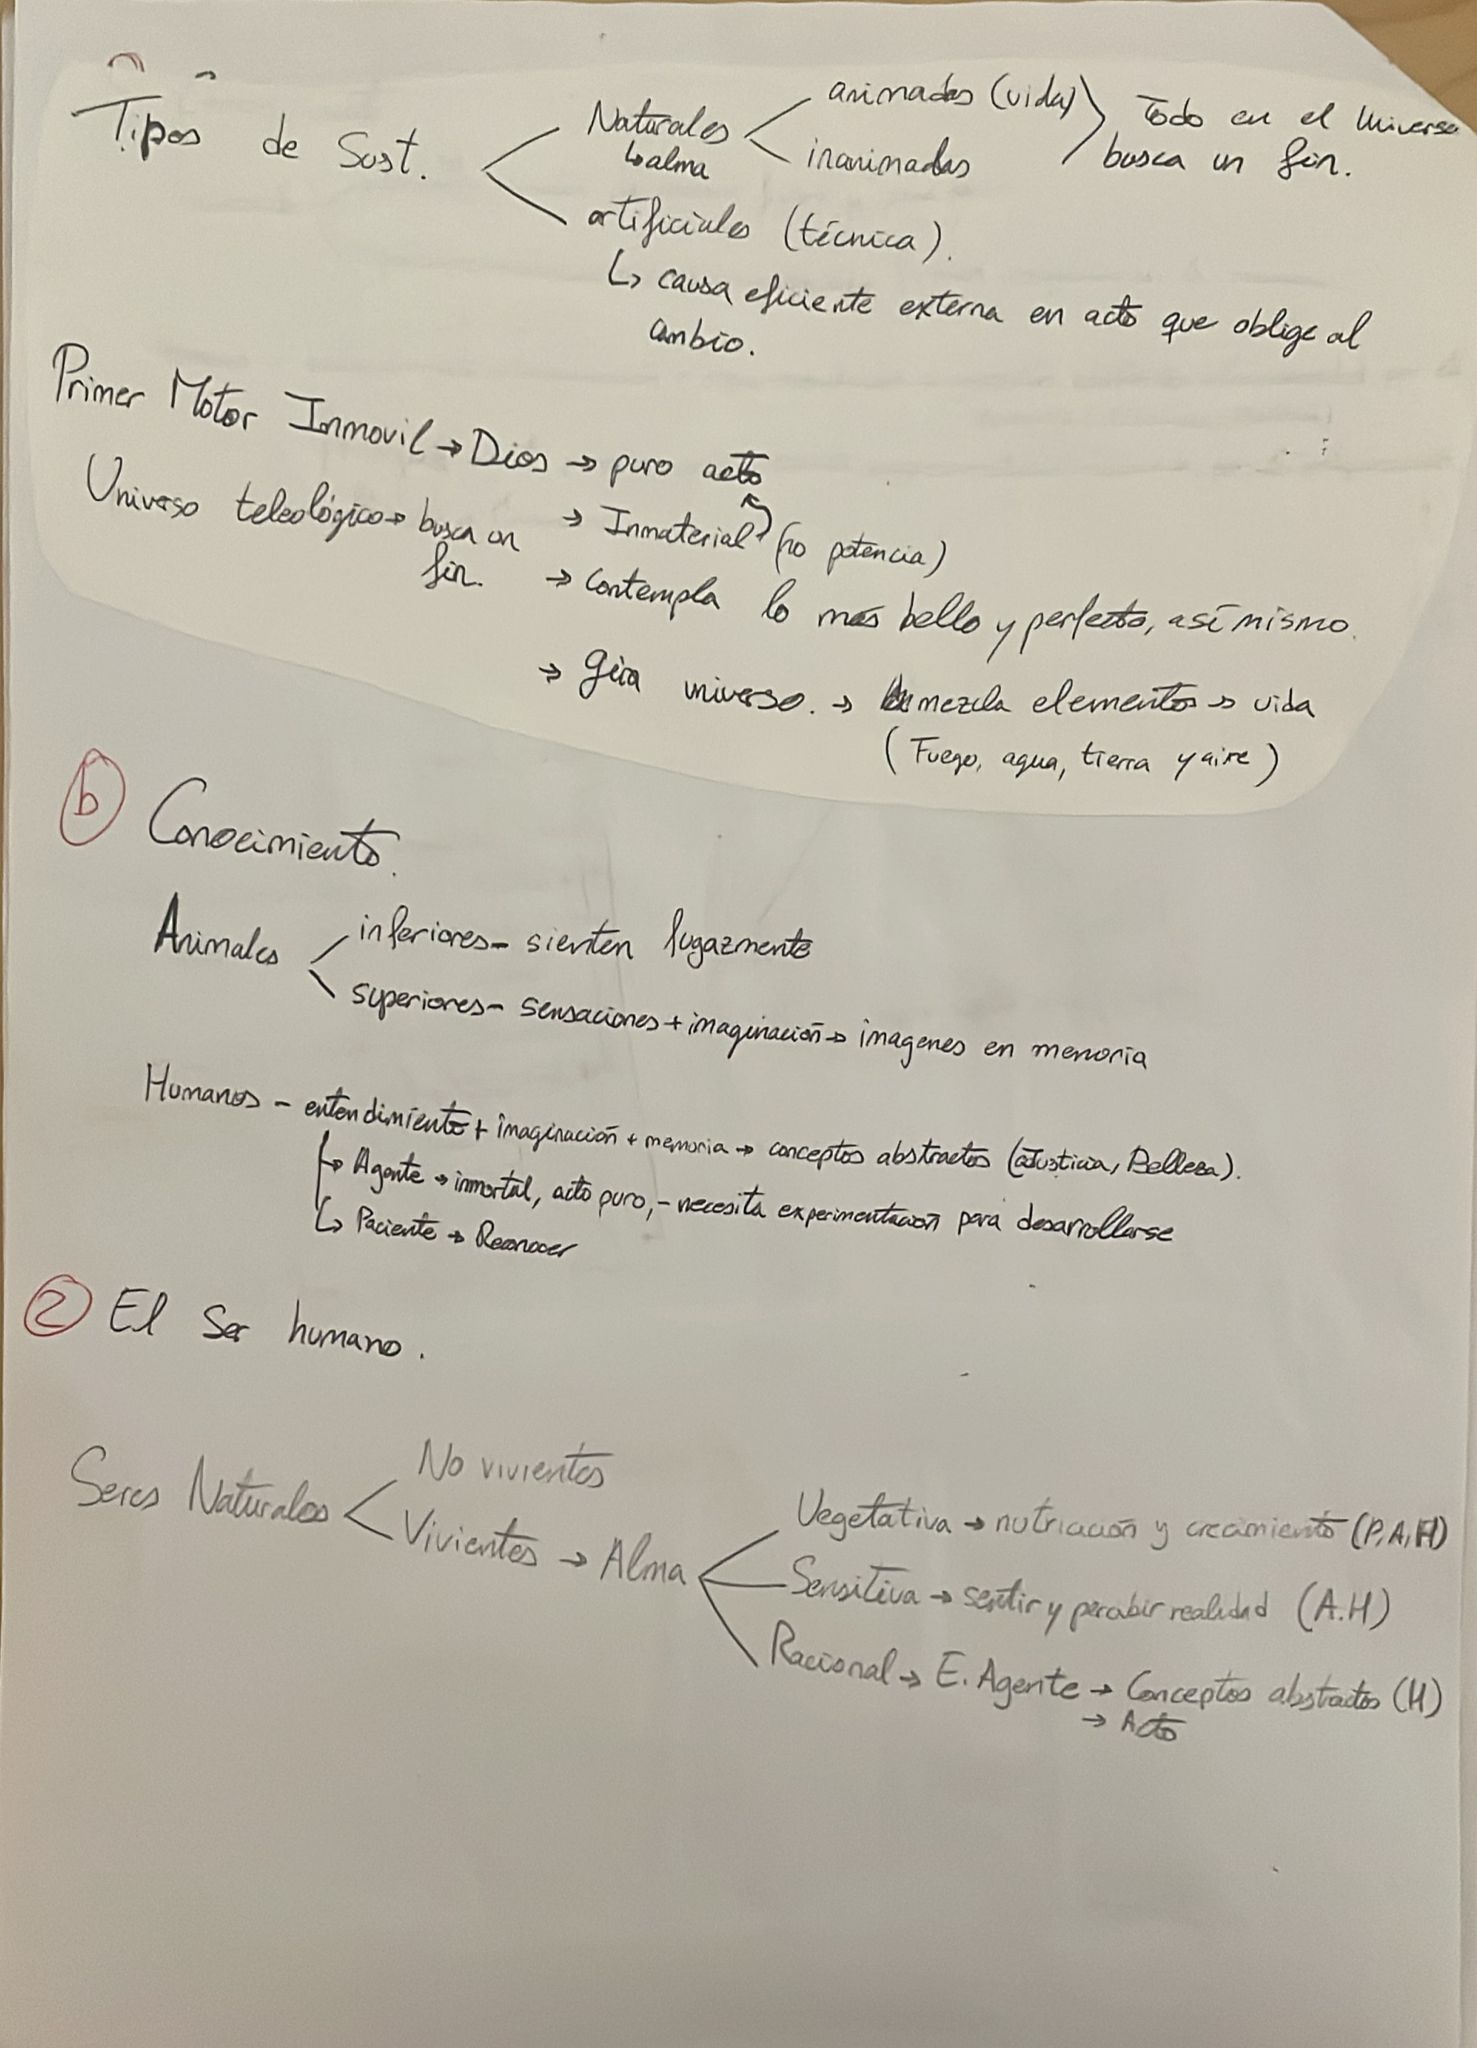 Tipos de Sust.
Naturales
↳ alma
animadas (vida)
inanimadas
Todo en el Universo
busca un fin.
artificiales (técnica).
↳ causa eficiente externa en acto que oblige al
cambio.
Primer Motor Inmovil → Dios → puro acto
Universo teleológico → busca un
fin.
→ Inmaterial (no potencia)
→ Contempla lo más bello y perfecto, así mismo.
→ gira universo. → mezcla elementos → vida
(Fuego, agua, tierra y aire)
b Conocimiento.
Animales
inferiores - sienten fugazmente
superiores - sensaciones + imaginación → imagenes en memoria
Humanos - entendimiento + imaginación + memoria → conceptos abstractos (Justicia, Belleza).
↳ Agente → inmortal, acto puro, - necesita experimentación para desarrollarse
↳ Paciente → Reconocer
2 El Ser humano.
Seres Naturales
No vivientes
Vivientes → Alma
Vegetativa → nutricación y crecimiento (P, A, H)
Sensitiva → sentir y percibir realidad (A.H)
Racional → E. Agente → Conceptos abstractos (H)
→ Acto